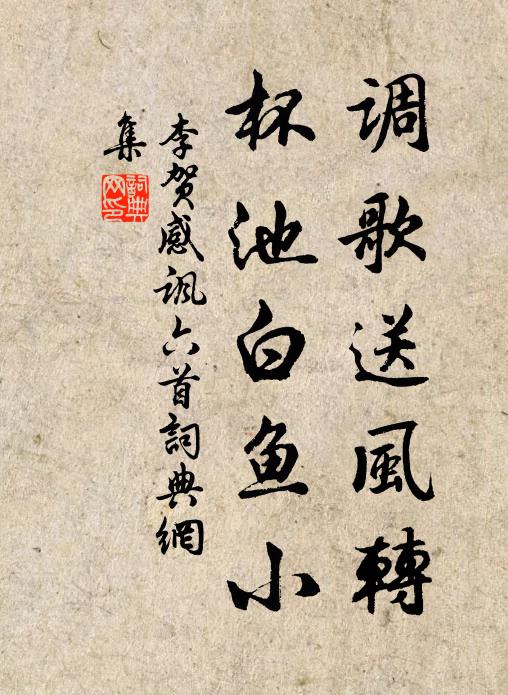 调歌送風轉
杯池白鱼小
李贺感讽六首詞典網
集
詞典
网印